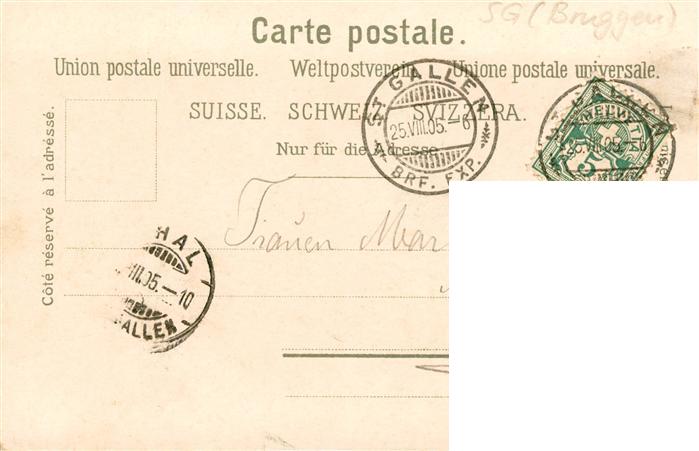 SG (Bruggen)
Carte postale.
Union postale universelle. Weltpostverein. Unione postale universale.
SUISSE. SCHWEIZ. SVIZZERA.
Nur für die Adresse.
Côté réservé à l'adréssé.
ST. GALLEN
25.VIII.05.—6
BRF. EXP.
HELVETIA
5
HAL
III.05.—10
GALLEN